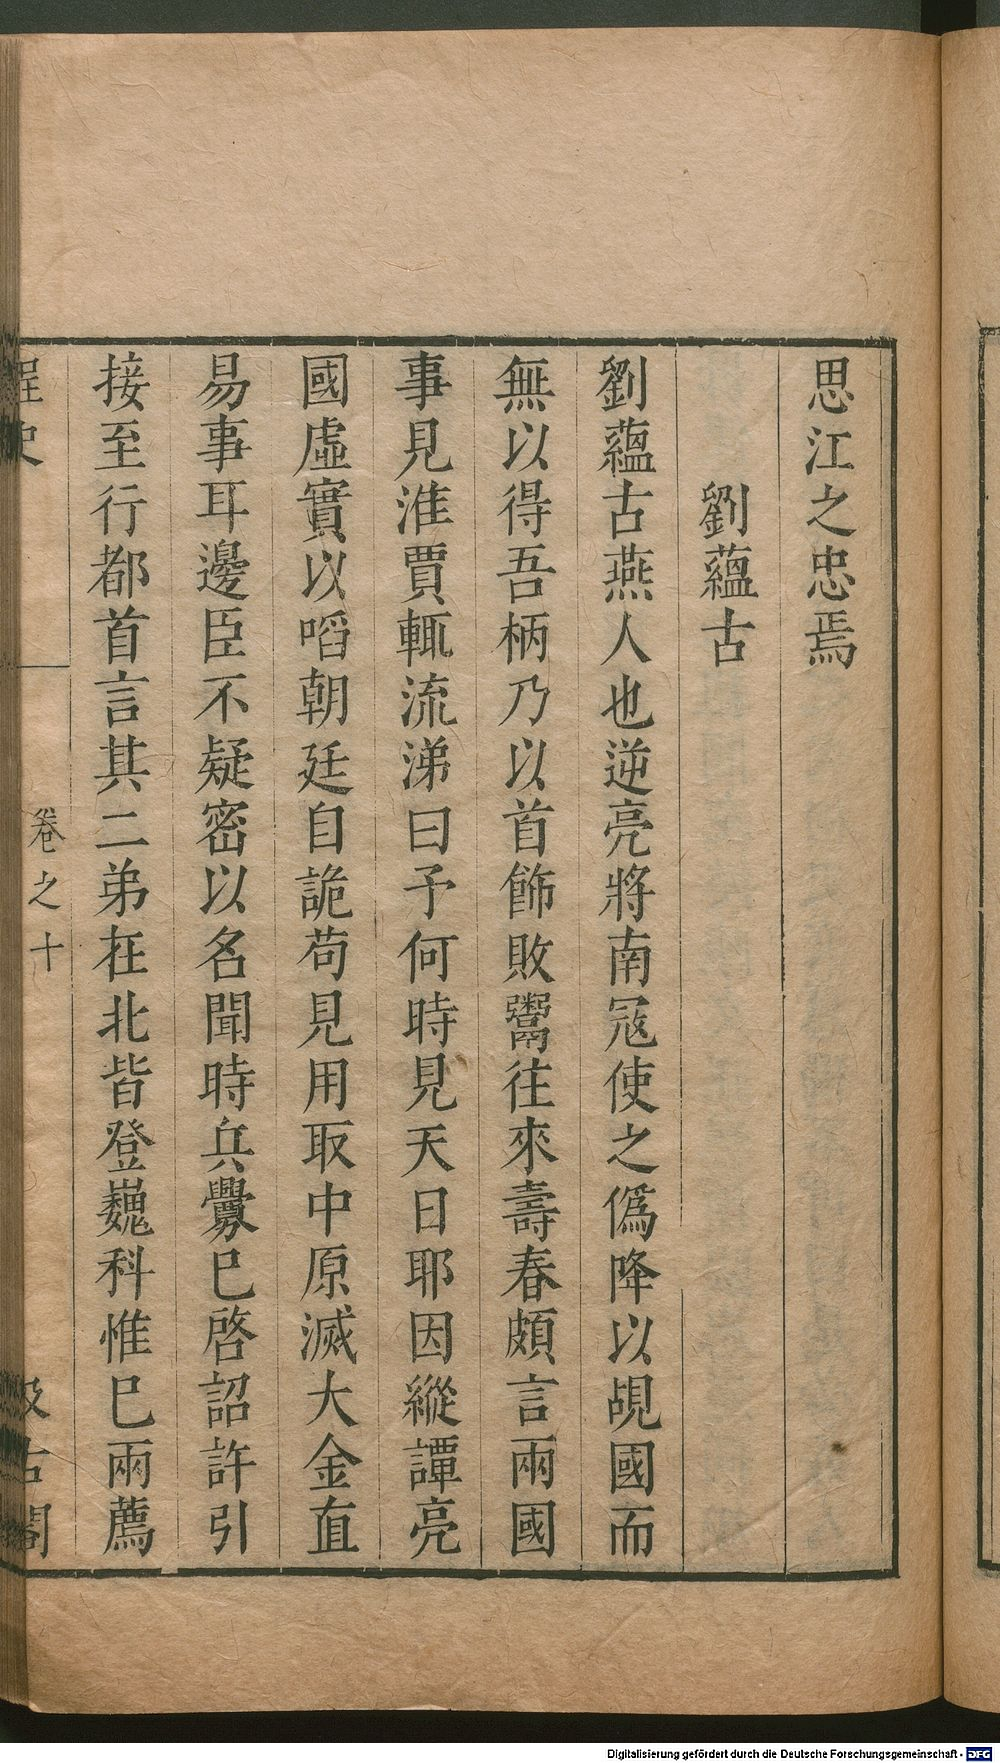 思江之忠焉
劉蘊古
劉蘊古燕人也逆亮將南冦使之僞降以覘國而
無以得吾柄乃以首飾敗鬻往來壽春頗言兩國
事見淮賈輒流涕曰予何時見天日耶因縱譚亮
國虛實以㗖朝廷自詭苟見用取中原滅大金直
易事耳邊臣不疑密以名聞時兵釁巳啓詔許引
接至行都首言其二弟在北皆登巍科惟巳兩薦
桯史
卷之十
汲古閣
Digitalisierung gefördert durch die Deutsche Forschungsgemeinschaft - DFG